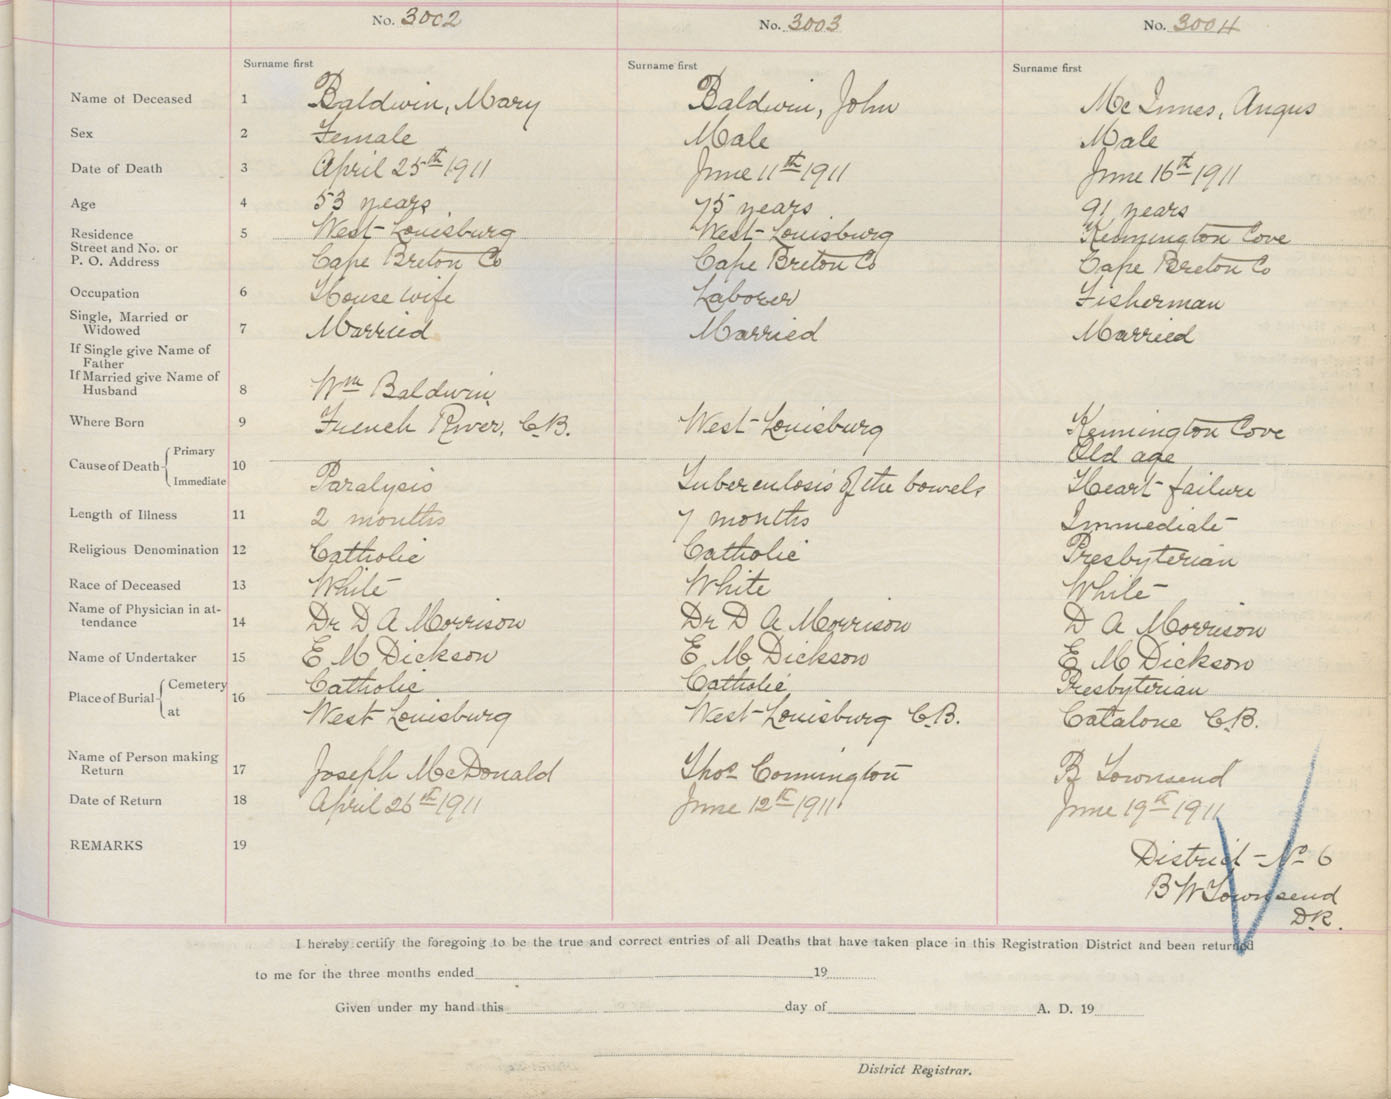 No. 3002 No. 3003 No. 3004
Surname first Surname first Surname first
Name of Deceased 1 Baldwin, Mary Baldwin, John McInnes, Angus
Sex 2 Female Male Male
Date of Death 3 April 25th 1911 June 11th 1911 June 16th 1911
Age 4 53 years 75 years 91 years
Residence 5 West-Louisburg West-Louisburg Kennington Cove
Street and No. or
P. O. Address Cape Breton Co Cape Breton Co Cape Breton Co
Occupation 6 House wife Laborer Fisherman
Single, Married or
Widowed 7 Married Married Married
If Single give Name of
Father
If Married give Name of
Husband 8 Wm Baldwin
Where Born 9 French River, C.B. West-Louisburg Kennington Cove
Cause of Death Primary 10 Old age
Immediate Paralysis Tuberculosis of the bowels Heart-failure
Length of Illness 11 2 months 7 months Immediate
Religious Denomination 12 Catholic Catholic Presbyterian
Race of Deceased 13 White White White
Name of Physician in at-
tendance 14 Dr D A Morrison Dr D A Morrison D A Morrison
Name of Undertaker 15 E M Dickson E M Dickson E M Dickson
Place of Burial Cemetery 16 Catholic Catholic Presbyterian
at West-Louisburg West-Louisburg C.B. Catalone C.B.
Name of Person making
Return 17 Joseph McDonald Thos Connington B Townsend
Date of Return 18 April 26th 1911 June 12th 1911 June 19th 1911
REMARKS 19 District-No 6
B W Townsend
D.R.
I hereby certify the foregoing to be the true and correct entries of all Deaths that have taken place in this Registration District and been returned
to me for the three months ended 19
Given under my hand this day of A. D. 19
District Registrar.